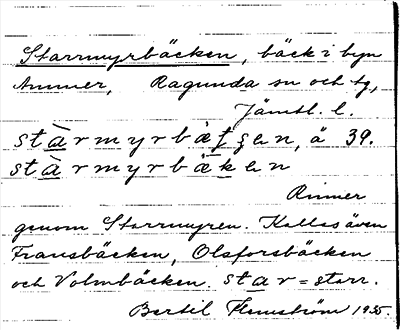 Starrmyrbäcken, bäck i byn
Ammer, Ragunda sn och tg,
Jämtl. l.
stàrmyrbätʃen, ä 39.
stàrmyrbäken
Rinner
genom Starrmyren. Kallas även
Fransbäcken, Olsforsbäcken
och Volmbäcken. star = starr.
Bertil Flemström 1935.